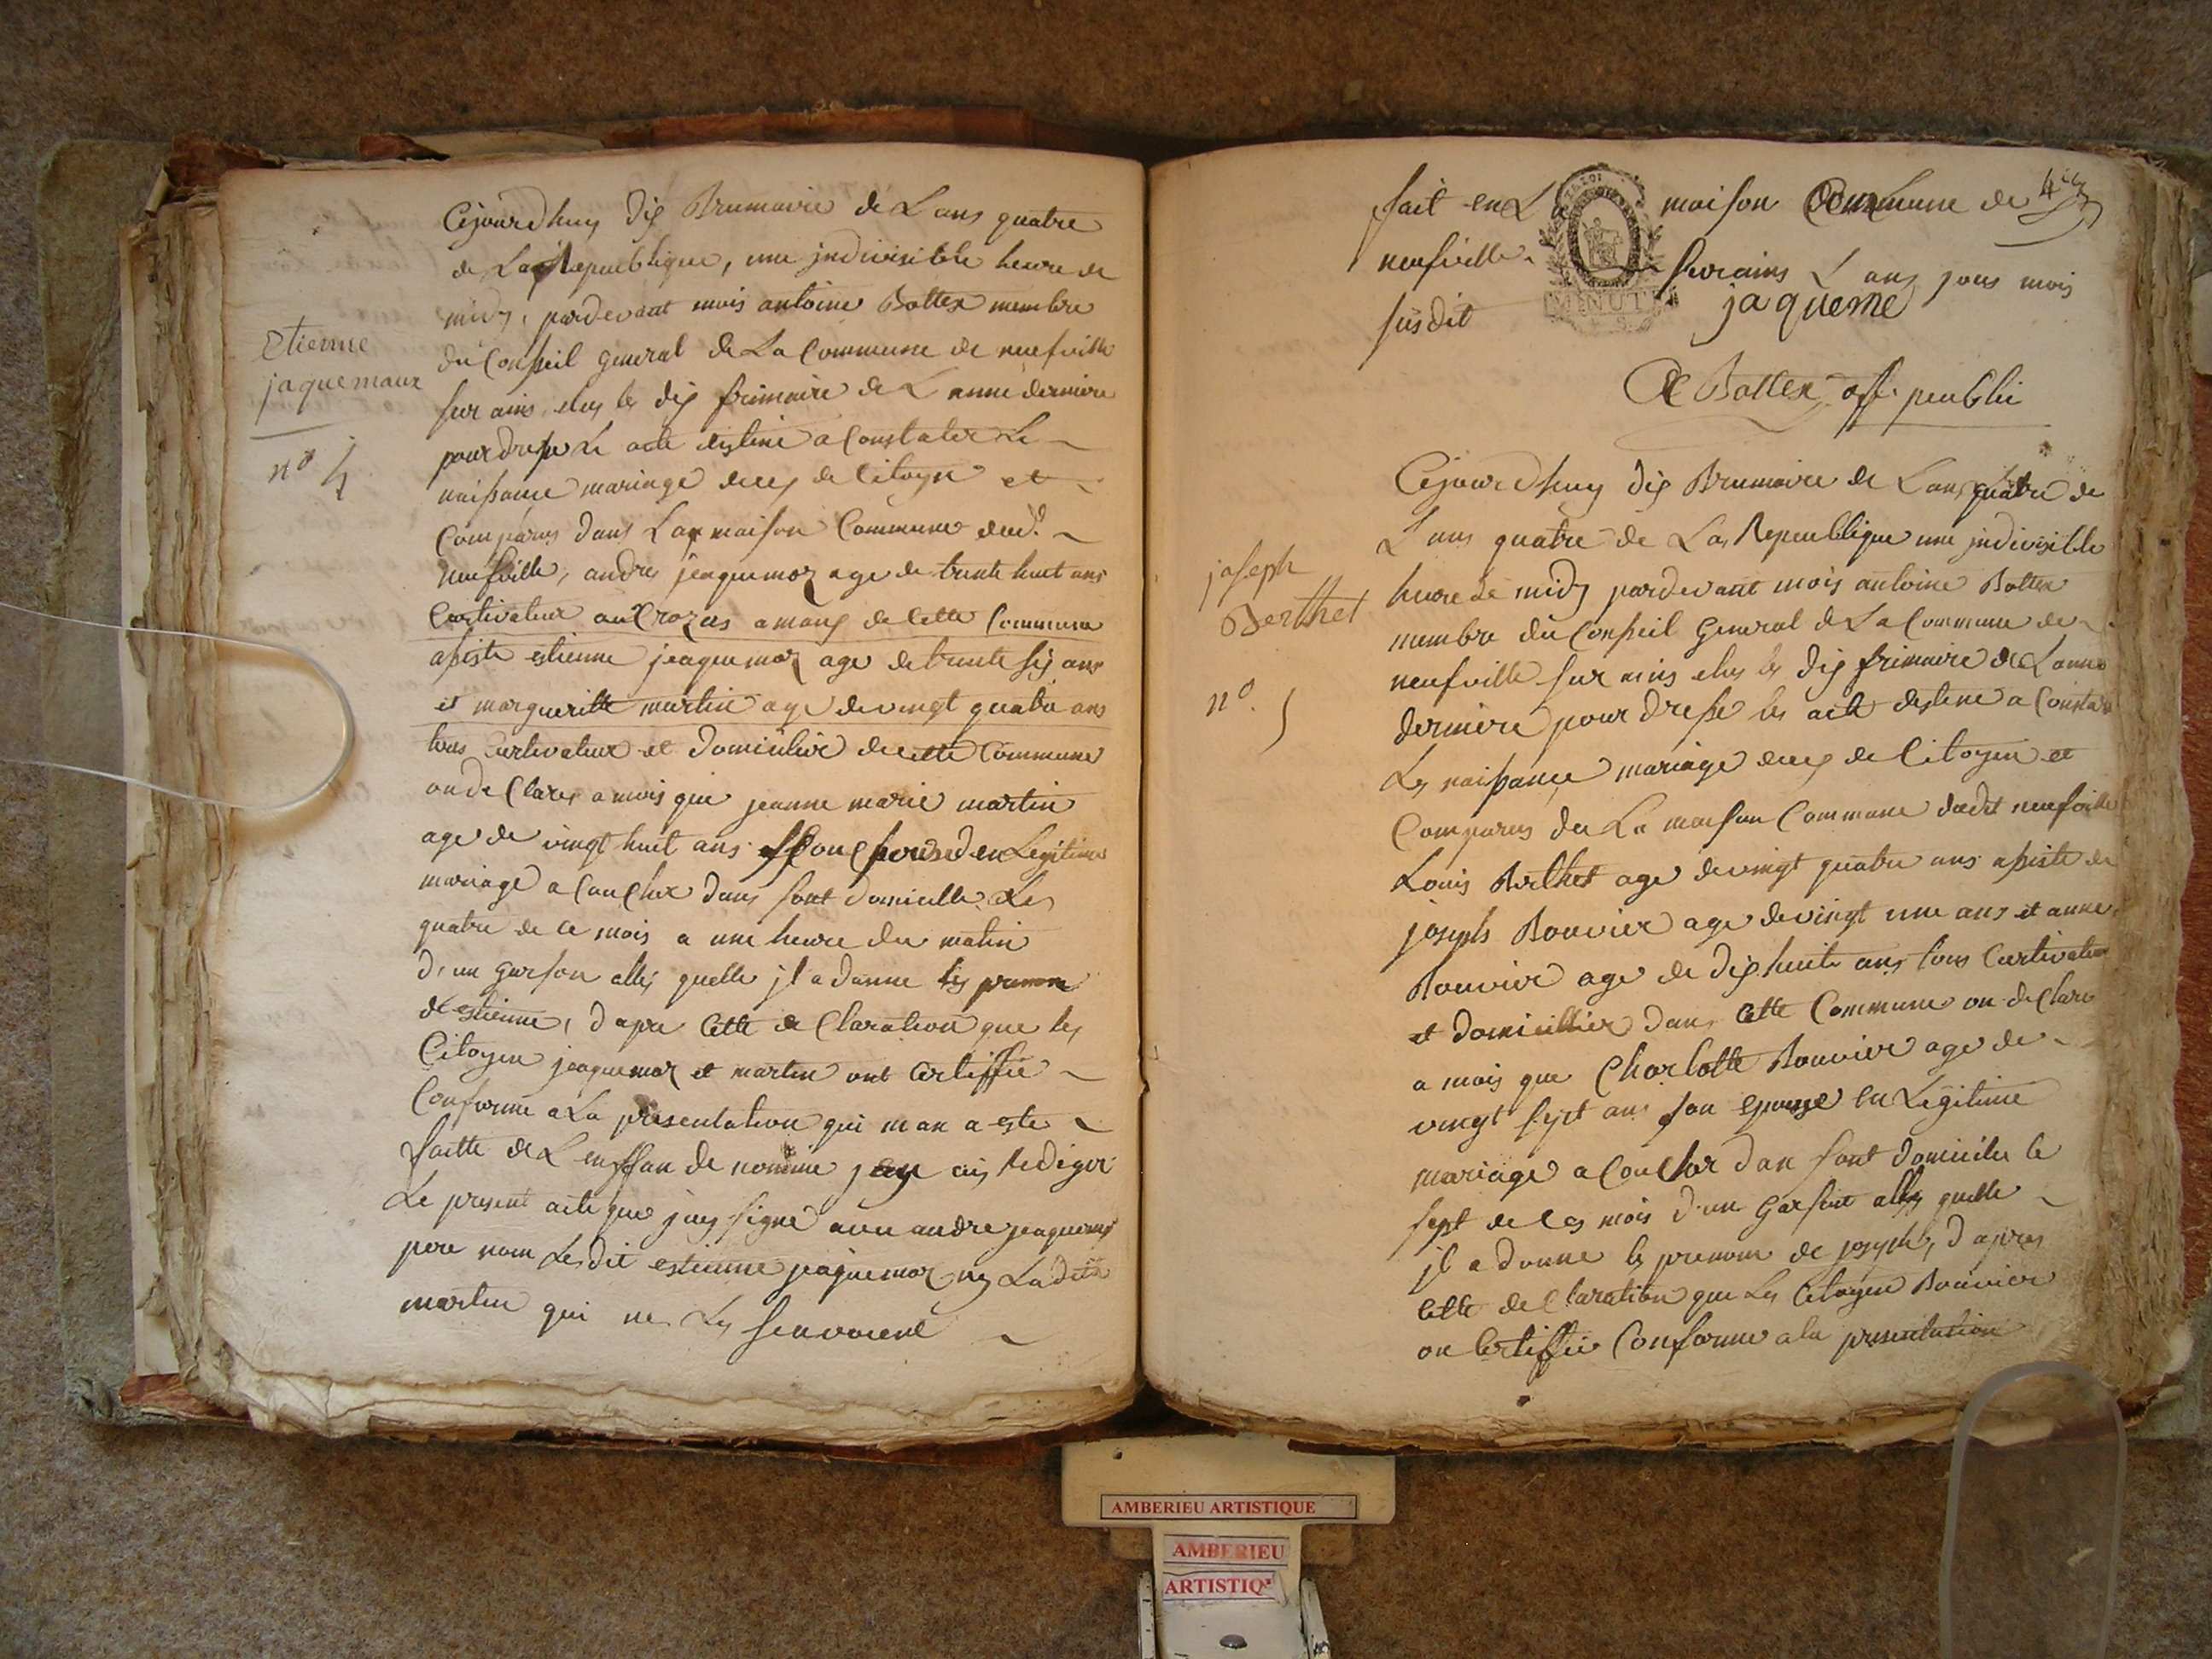 Etienne
jaquemaux
n° 4
Cejourdhuy dix Brumaire de Lans quatre
de La Republique, une jndivisible heure de
midy, pardevant mois antoine Bottex membre
du Conseil general de La Commune de neufville
sur ains, elus les dix frimaire de Lanne derniere
pour dresse Le acte destine a Constater Le
naissance mariage deces de Citoyn et
Comparus dans La maison Commune dud.
neufville, andres jeaquemoz age de trente huit ans
Cultivateur au Crozes amans de Cette Commune
asiste estienne jeaquemoz age de trente six ans
et margueritte martin age de vingt quatre ans
tous Curtivateur et domicilier de cette Commune
on de Clares a mois que jeanne marie martin
age de vingt huit ans en Legitime
mariage a Coucher dans sont domicille Les
quatre de ce mois a une heure du matin
d'un garson alles quelle jl a donne les prenom
de estienne, dapre Cette de Claration que les
Citoyen jeaquemoz et martin ont Certiffie
Conforme a La presentation qui man a este
faitte de L enffan de nomme j ay redigee
Le present acte que jay signe avec andre jeaquemoz
pere nom Lesdit estienne jeaquemoz ny Ladite
martin qui ne Ly scavoient
4
fait en La maison Commune de
neufville sur ains L ans jours mois
susdit
MINUT
jaqueme
A Bottex off. peublic
joseph
Berthet
n°. 5
Cejourdhuy dix Brumaire de Lans quatre de
L ans quatre de La Republique une jndivisible
heure de midy pardevant mois antoine Bottex
membre du Conseil General de La Commune de
neufville sur ains elus les dix frimaire de Lanne
derniere pour dresse les acte destine a Constate
Les naissance mariage deces de Citoyen et
Comparus da La maison Commune dudit neufville
Louis Berthet age de vingt quatre ans asiste de
joseph Bouvier age de vingt une ans et anne
Bouvier age de dix huite ans tous Curtivateur
et domicillier dans Cette Commune on de Clare
a mois que Charlotte Bouvier age de
vingt sept ans son epouse en Legitime
mariage a Coucher dan sont domicile le
sept de Ces mois d'un garsont alles quelle
jl a donne les prenom de joseph, dapres
Cette de Claration que Les Citoyen Bouvier
on Certiffie Conforme a la presentation
AMBERIEU ARTISTIQUE
AMBERIEU
ARTISTIQ